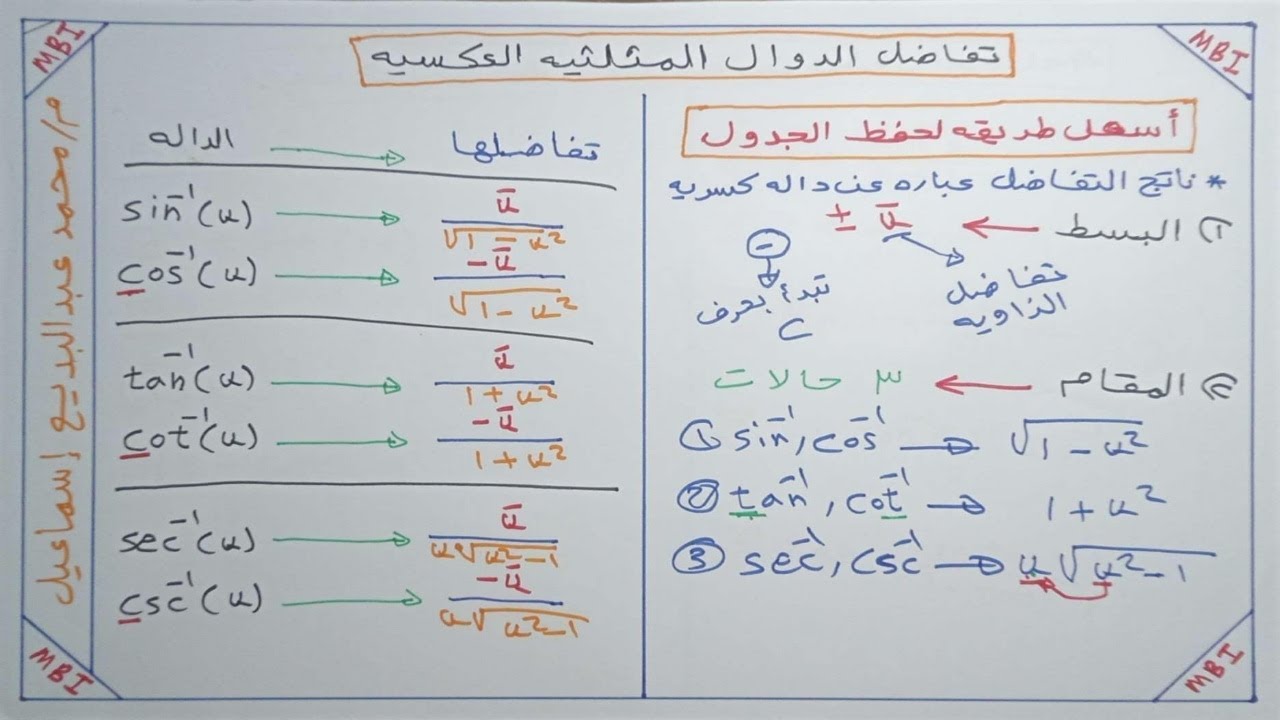 تفاضل الدوال المثلثيه العكسيه
MBI
MBI
م/محمد عبدالبديع إسماعيل
أسهل طريقه لحفظ الجدول
* ناتج التفاضل عباره عن داله كسريه
① البسط ← ± ū
تفاضل الزاويه
⊖
تبدأ بحرف
C
② المقام ← ٣ حالات
① sin⁻¹, cos⁻¹ → √(1 - u²)
② tan⁻¹, cot⁻¹ → 1 + u²
③ sec⁻¹, csc⁻¹ → u√(u² - 1)
الداله → تفاضلها
sin⁻¹(u) → ū / √(1 - u²)
cos⁻¹(u) → -ū / √(1 - u²)
tan⁻¹(u) → ū / (1 + u²)
cot⁻¹(u) → -ū / (1 + u²)
sec⁻¹(u) → ū / (u√(u² - 1))
csc⁻¹(u) → -ū / (u√(u² - 1))
MBI
MBI